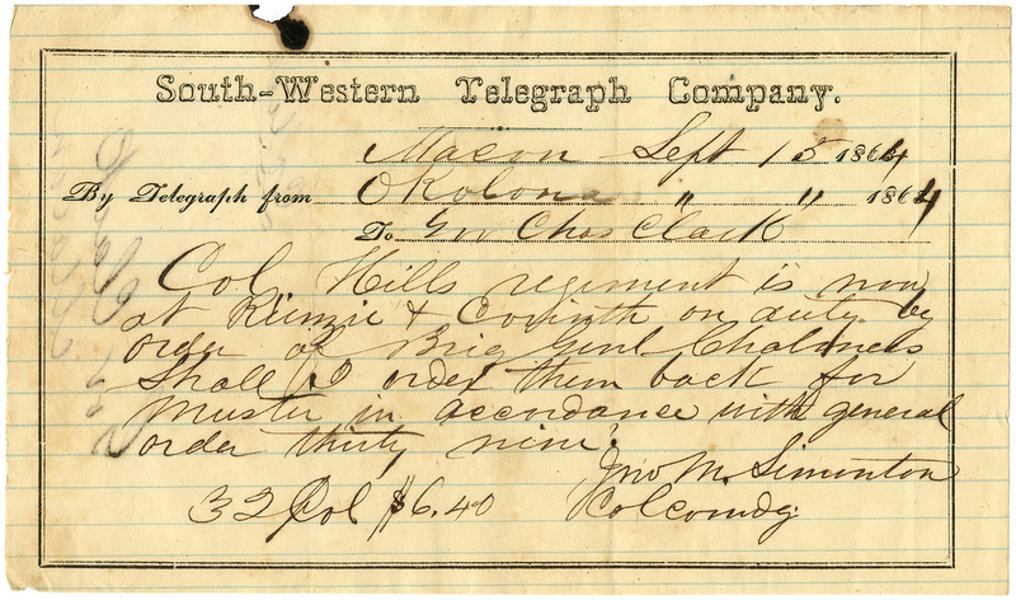 South-Western Telegraph Company.
Macon Sept 15 1864
By Telegraph from Okolona " " 1864
To Gov Chas Clark
Col Hills regiment is now
at Rienzie & Corinth on duty by
order of Brig Genl Chalmers
Shall I order them back for
Muster in accordance with general
order thirty nine?
Jno M. Simonton
32 Col $6.40 Col comdg